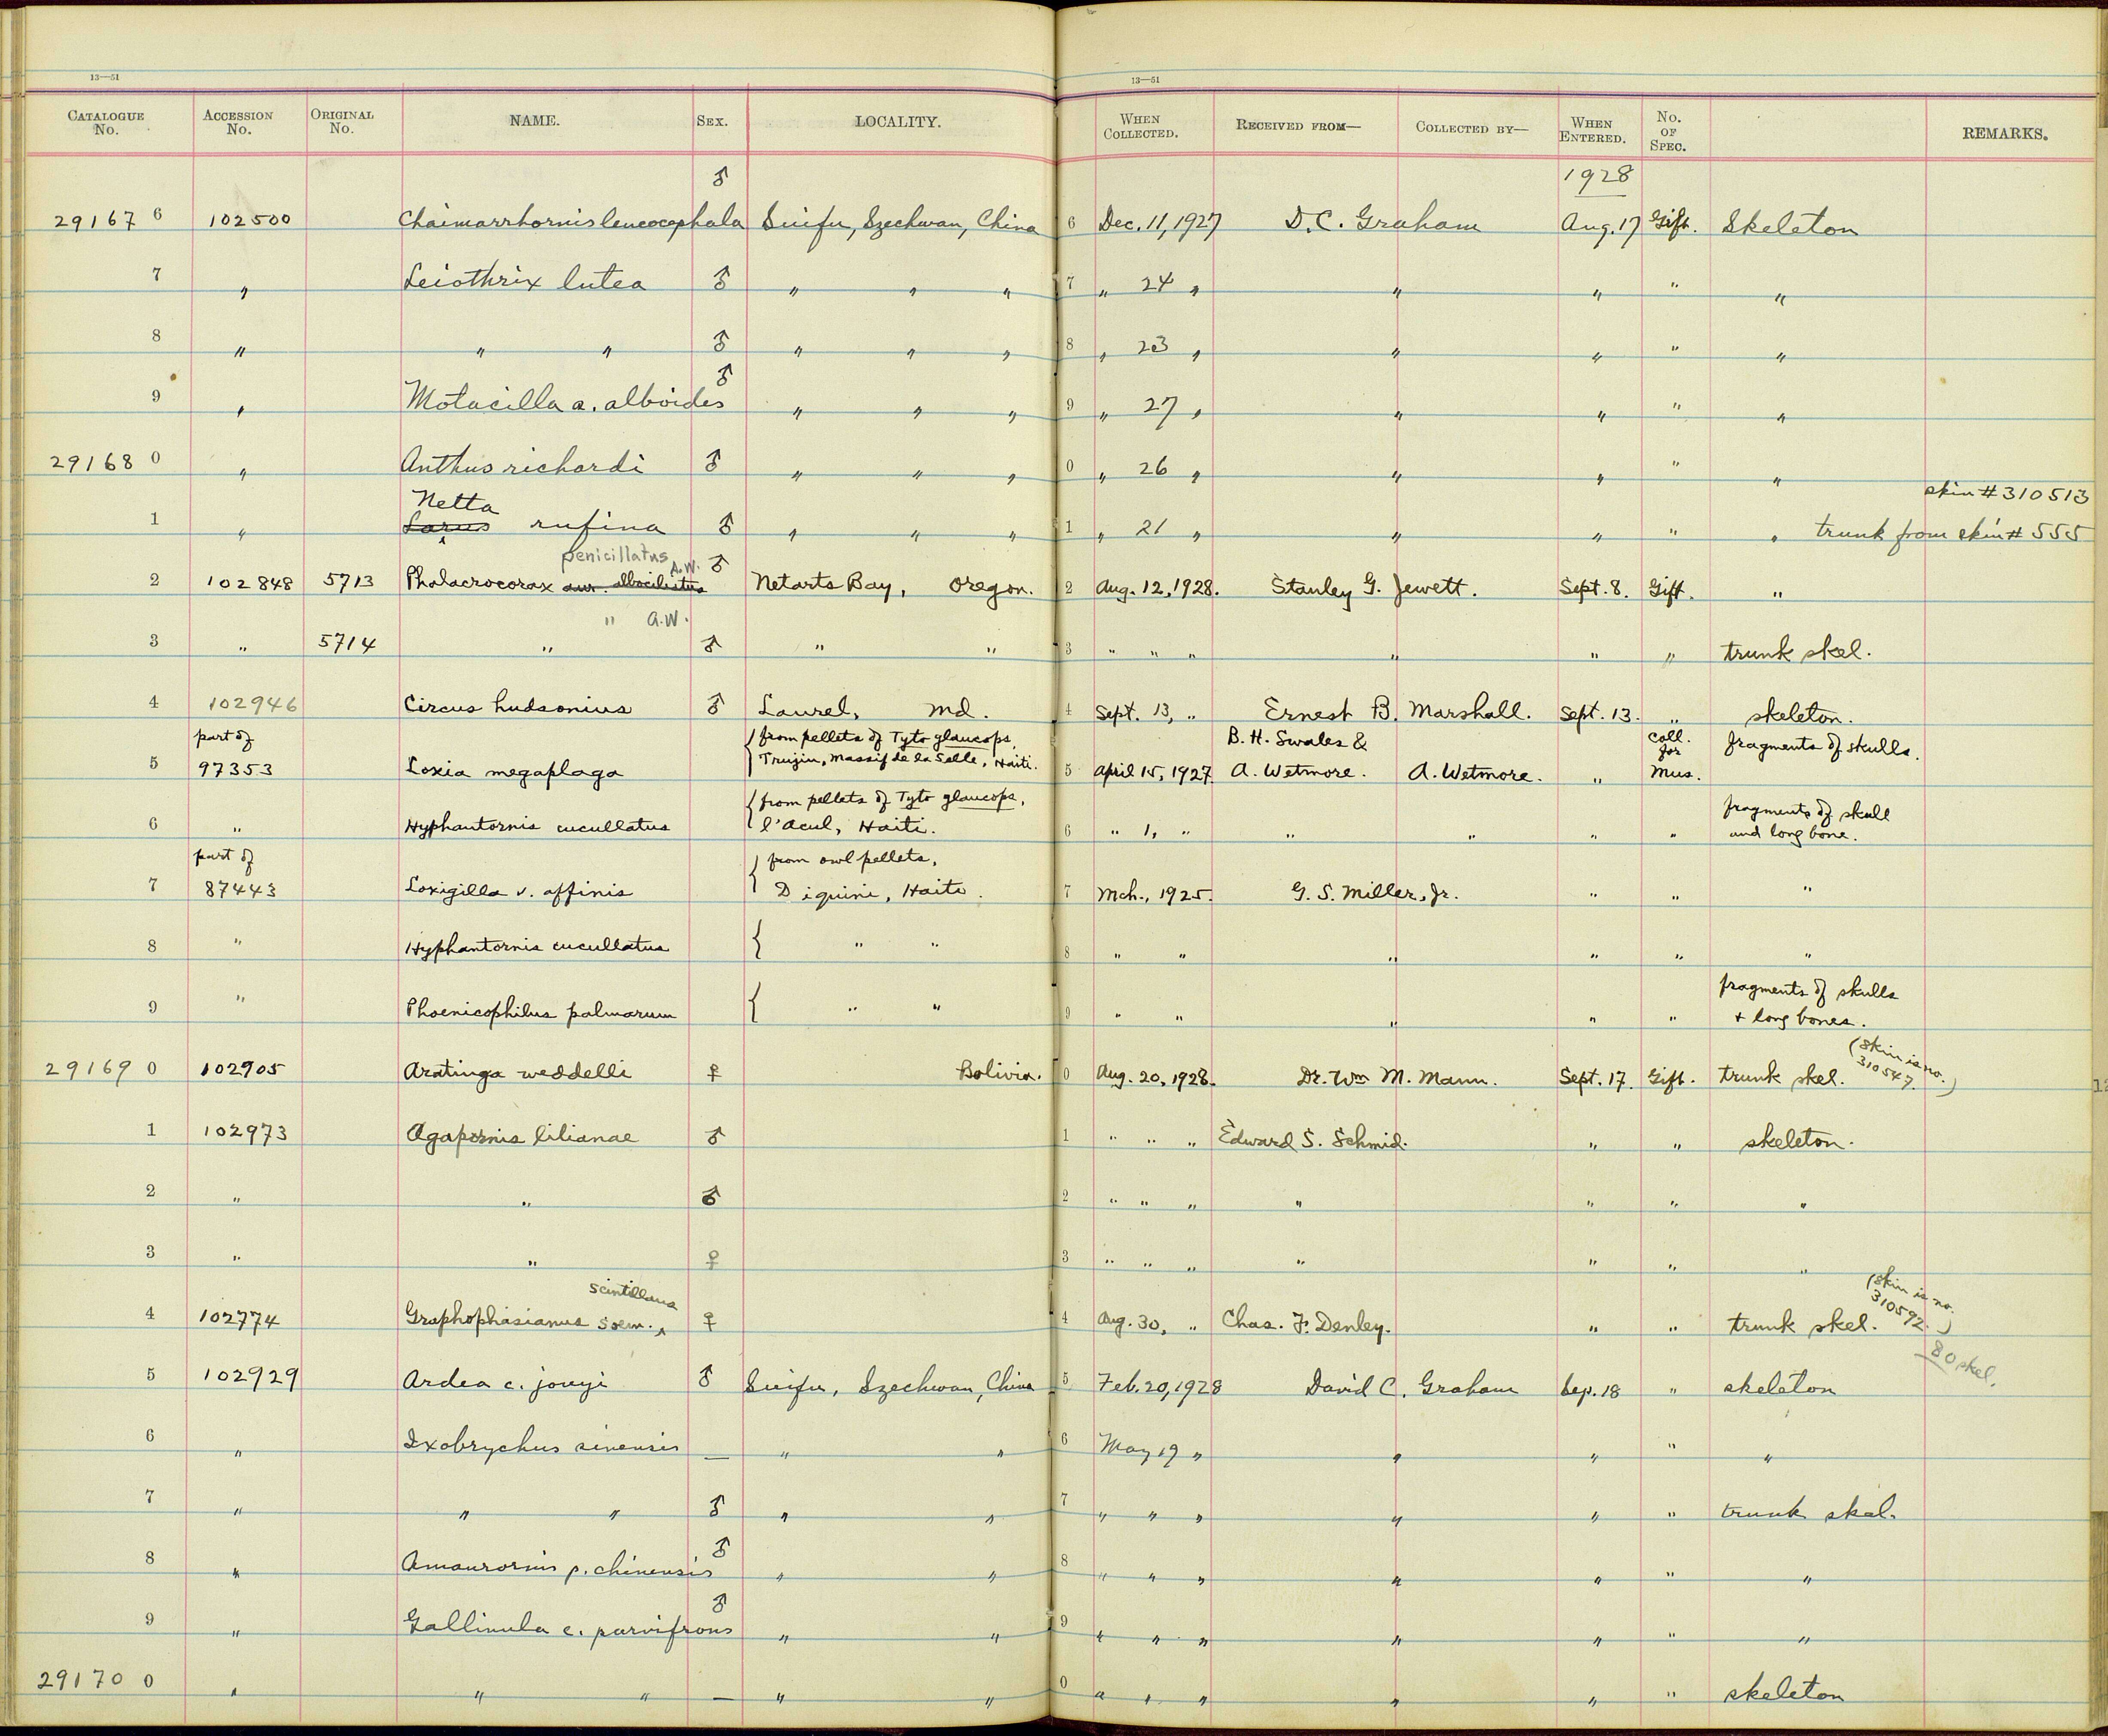 13—51 13—51
CATALOGUE No. ACCESSION No. ORIGINAL No. NAME. SEX. LOCALITY. WHEN COLLECTED. RECEIVED FROM— COLLECTED BY— WHEN ENTERED. No. OF SPEC. REMARKS.
♂ 1928
29167 6 102500 Chaimarrhornis leucocephala Suifu, Szechwan, China 6 Dec. 11, 1927 D. C. Graham Aug. 17 Gift. Skeleton
7 " Leiothrix lutea ♂ " " " 7 " 24 " " " " "
8 " " " ♂ " " " 8 " 23 " " " " "
9 " Motacilla a. alboides ♂ " " " 9 " 27 " " " " "
29168 0 " Anthus richardi ♂ " " " 0 " 26 " " " " "
Netta skin # 310513
1 " Larus rufina ♂ " " " 1 " 21 " " " " " trunk from skin # 555
penicillatus A.W.
2 102848 5713 Phalacrocorax aur. albociliatus ♂ Netarts Bay, Oregon. 2 Aug. 12, 1928. Stanley G. Jewett. Sept. 8. Gift. "
" A.W.
3 " 5714 " ♂ " " 3 " " " " " " trunk skel.
4 102946 Circus hudsonius ♂ Laurel, Md. 4 Sept. 13, " Ernest B. Marshall. Sept. 13. " skeleton.
part of { from pellets of Tyto glaucops, B. H. Swales & coll. for fragments of skulls.
5 97353 Loxia megaplaga Trujin, Massif de la Selle, Haiti. 5 April 15, 1927. A. Wetmore. A. Wetmore. " Mus.
{ from pellets of Tyto glaucops, fragments of skull
6 " Hyphantornis cucullatus l'Acul, Haiti. 6 " 1, " " " " " and long bone.
part of { from owl pellets,
7 87443 Loxigilla v. affinis Diquini, Haiti. 7 Mch., 1925. G. S. Miller, Jr. " " "
8 " Hyphantornis cucullatus { " " 8 " " " " " "
fragments of skulls
9 " Phoenicophilus palmarum { " " 9 " " " " " + long bones.
29169 0 102905 Aratinga weddelli ♀ Bolivia. 0 Aug. 20, 1928. Dr. Wm M. Mann. Sept. 17. Gift. trunk skel. (Skin is no. 310547.)
1 102973 Agapornis lilianae ♂ 1 " " " Edward S. Schmid. " " skeleton.
2 " " ♂ 2 " " " " " " "
3 " " ♀ 3 " " " " " " "
scintillans (Skin is no. 310592.)
4 102774 Graphophasianus soem. ♀ 4 Aug. 30, " Chas. F. Denley. " " trunk skel.
80 skel.
5 102929 Ardea c. jouyi ♂ Suifu, Szechwan, China 5 Feb. 20, 1928 David C. Graham Sep. 18 " skeleton
6 " Ixobrychus sinensis — " " 6 May 19 " " " " "
7 " " " ♂ " " 7 " " " " " " trunk skel.
8 " Amaurornis p. chinensis ♂ " " 8 " " " " " " "
9 " Gallinula c. parvifrons ♂ " " 9 " " " " " " "
29170 0 " " " — " " 0 " " " " " " skeleton